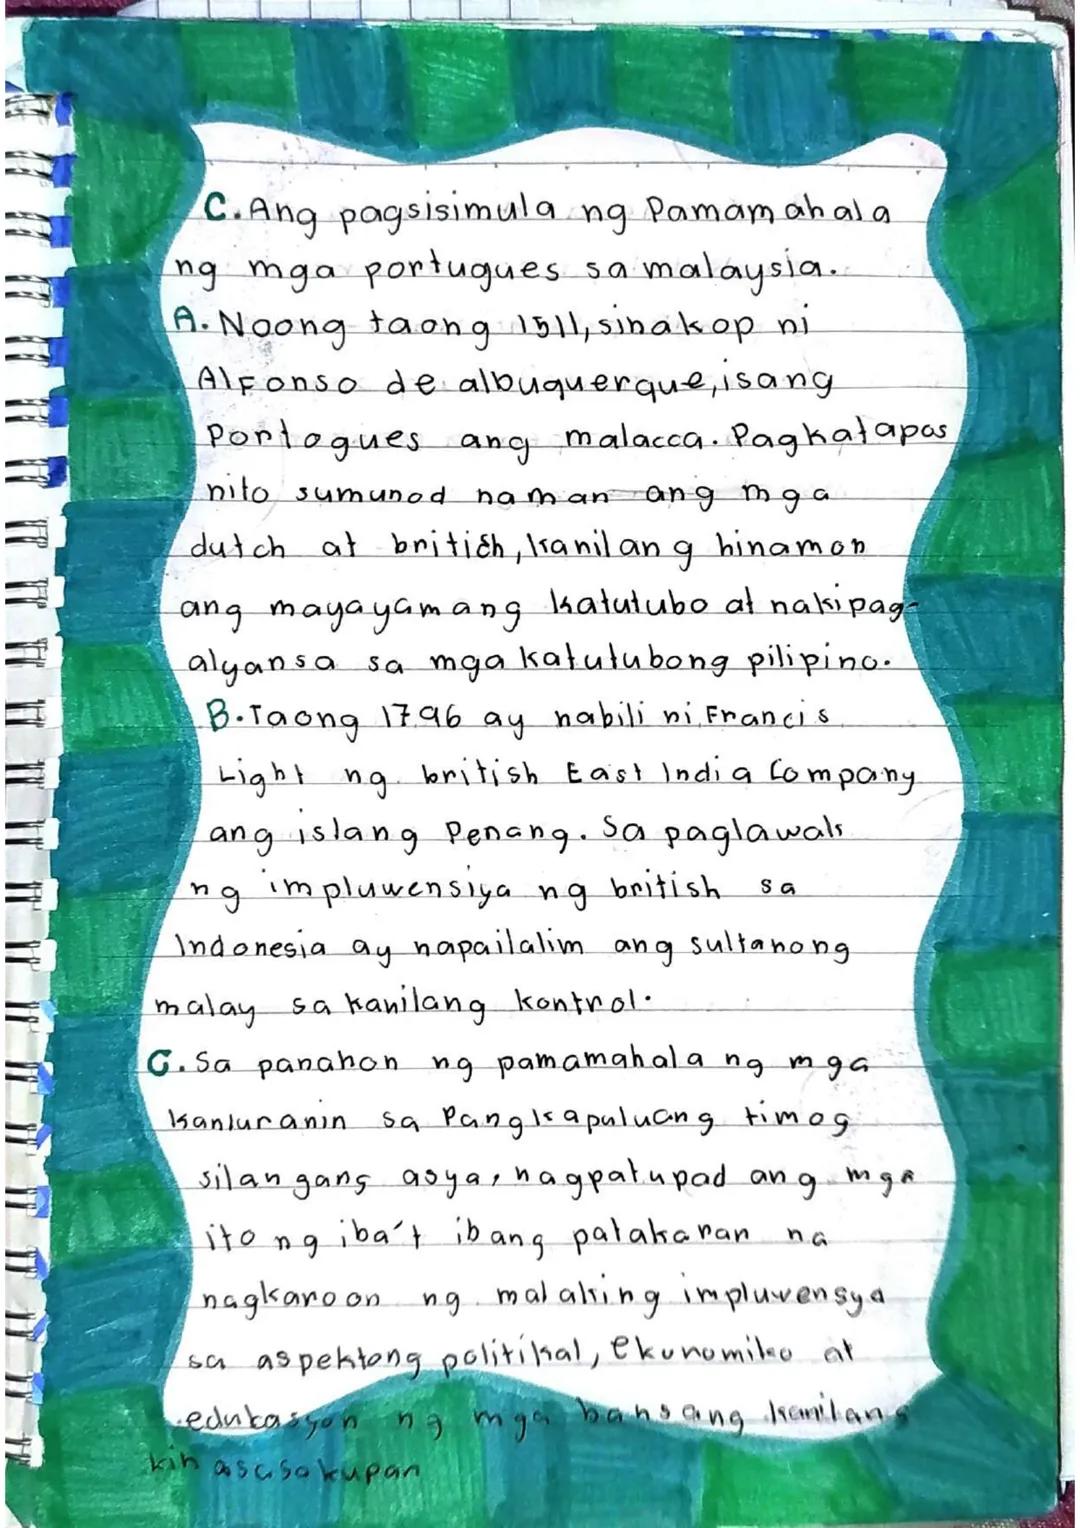 C. Ang pagsisimula ng Pamamahala
ng mga portugues sa malaysia.
A. Noong taong 1511, sinakop ni
Alfonso de albuquerque, isang
Portogues ang malacca. Pagkatapos
nito sumunod naman ang mga
dutch at british, kanilang hinamon
ang mayayamang katutubo at nakipag-
alyansa sa mga katutubong pilipino.
B. Taong 1796 ay nabili ni Francis
Light ng british East India Company
ang islang Penang. Sa paglawak
ng impluwensiya ng british sa
Indonesia ay napailalim ang sultanong
malay sa kanilang kontrol.
C. Sa panahon ng pamamahala ng mga
kanluranin sa Pangkapuluang timog
silangang asya, nagpatupad ang mga
ito ng iba't ibang patakaran na
nagkaroon ng malaking impluwensya
sa aspektong politikal, ekunomiko at
edukasyon ng mga bansang kanilang
kinasasakupan